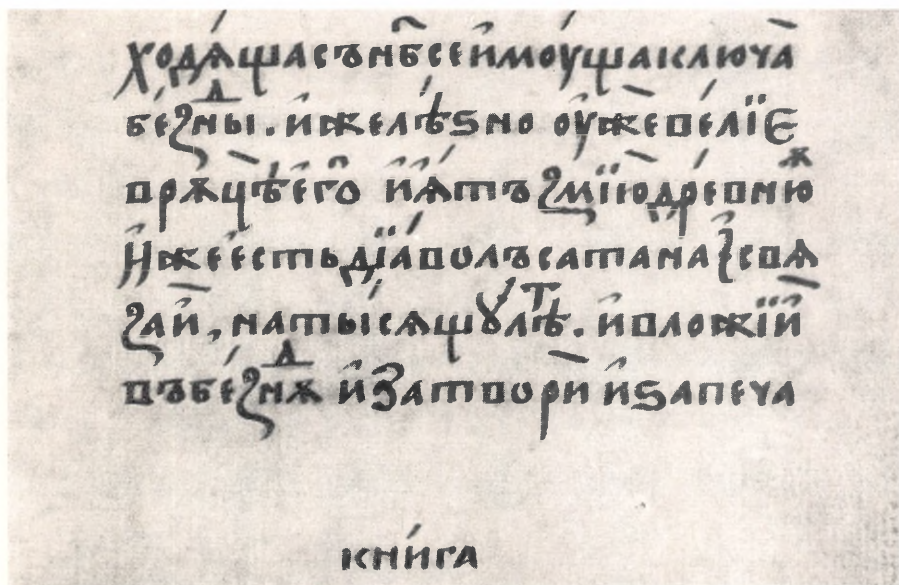 ходѧ́щасъ нб҃се и҆моу́щаключѧ̀
бе́ꙁⷣны. и҆желѣ́ѕно оу҆́жевелїе
врꙋцѣ̀е҆гѡ̀ и҆ꙗ҆́тъ ꙁмїю̀дре́внюⷤ
и҆́жее҆стьдїа́волъсатана̀ і҆свѧ
ꙁаѝ, наты́сѧщꙋлѣⷮ. и҆вложїѝ
въбе́ꙁⷣнѫ и҆затворѝ и҆ѕапеча
кни́га